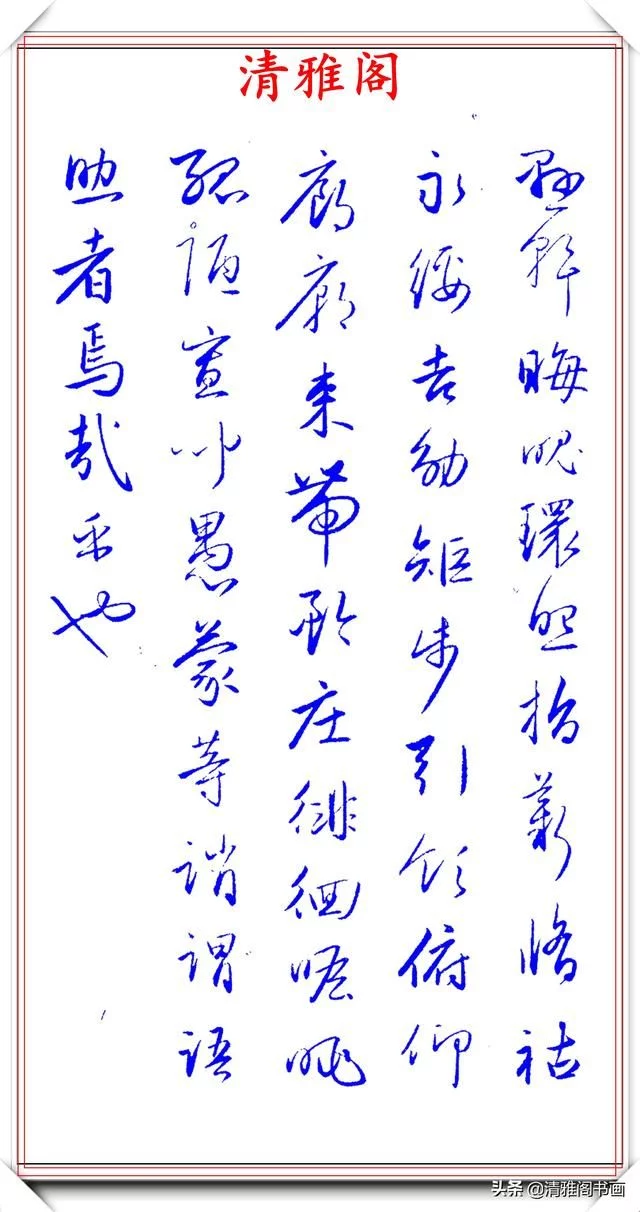 清雅阁
悬斡晦魄環照指薪脩祜
永绥吉劭矩步引领俯仰
廊廟束带矜庄徘徊瞻眺
孤陋寡闻愚蒙等誚謂语
助者焉哉乎也
头条 @清雅阁书画